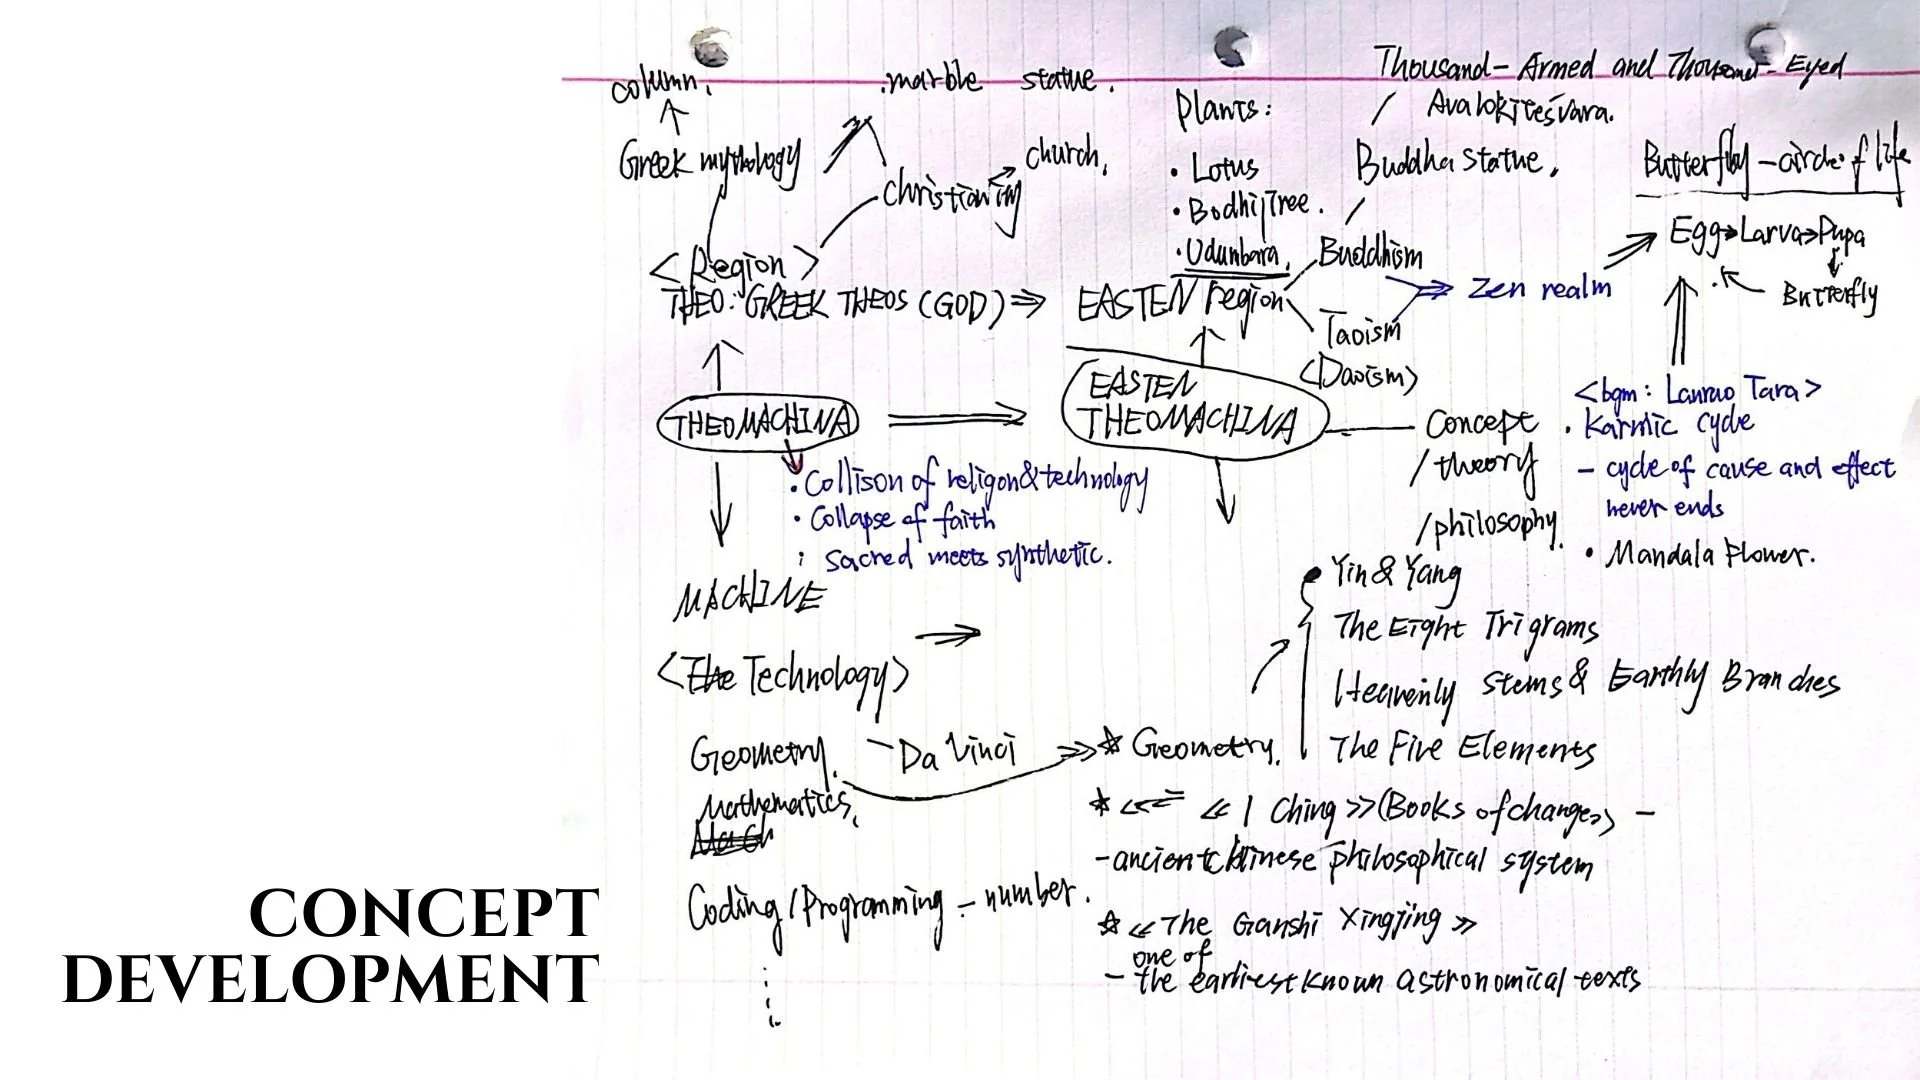 column.
marble statue.
Thousand-Armed and Thousand-Eyed
Avalokiteśvara.
Plants:
Greek mythology
church.
Christianity
• Lotus
• Bodhi Tree.
• Udunbara.
Buddha Statue.
Butterfly - circle of life
Egg → Larva → Pupa
Butterfly
<Region>
THEO: GREEK THEOS (GOD) ⇒
EASTEN region
Buddhism
Taoism
<Daoism>
Zen realm
THEOMACHINA
EASTEN
THEOMACHINA
• Collison of religon & technology
• Collapse of faith
Sacred meets synthetic.
Concept
/theory
/philosophy.
<bgm: Lanruo Tara>
• Karmic cycle
- cycle of cause and effect
never ends
• Mandala Flower.
MACHINE
<The Technology>
Geometry. - Da Vinci
Mathematics.
Coding/Programming - number.
• Yin & Yang
The Eight Trigrams
Heavenly Stems & Earthly Branches
The Five Elements
☆ Geometry.
* << I Ching >> (Books of changes) -
- ancient chinese philosophical system
☆ << The Ganshi Xingjing >>
one of
- the earliest known astronomical texts
CONCEPT
DEVELOPMENT